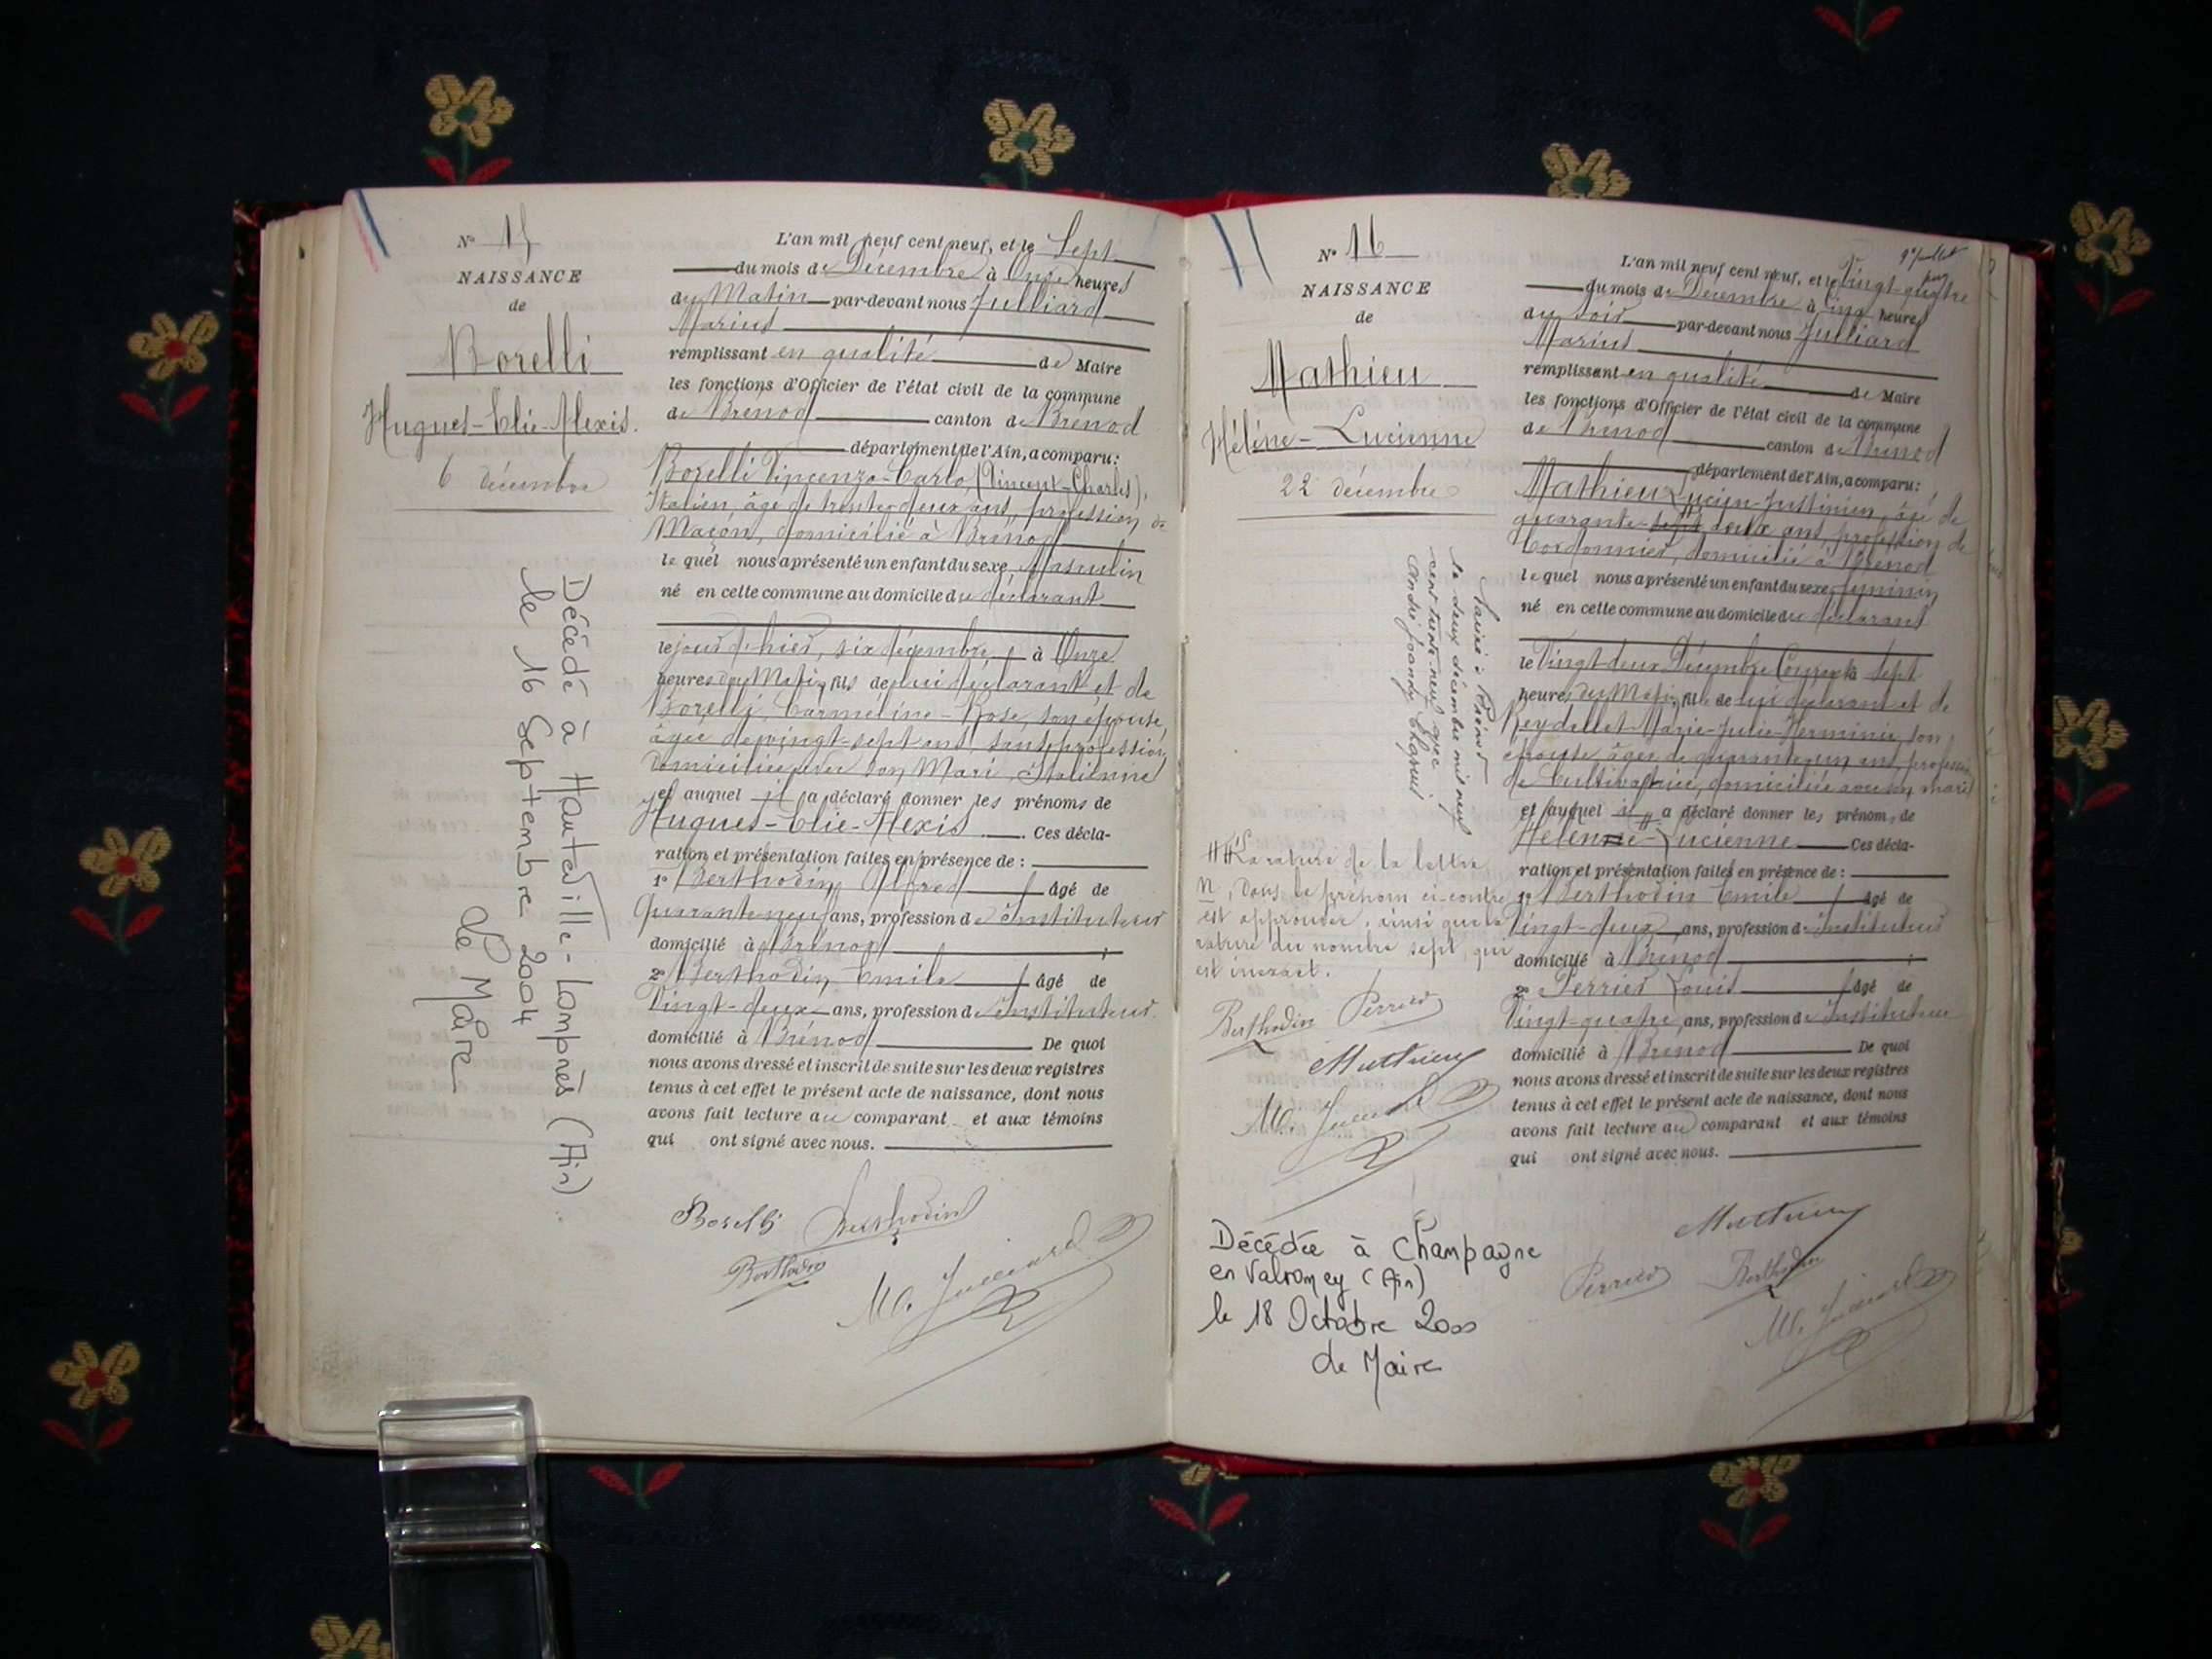 N° 15
NAISSANCE
de
Borelli
Hugues-Elie-Alexis.
6 décembre
Décédé à Hauteville-Lompnès (Ain)
le 16 Septembre 2004
le Maire
L'an mil neuf cent neuf, et le Sept
du mois de Décembre à Onze heures
du Matin par-devant nous Julliard
Marius
remplissant en qualité de Maire
les fonctions d'Officier de l'état civil de la commune
de Brénod canton de Brénod
département de l'Ain, a comparu:
Borelli Vincenzo-Carlo, (Vincent-Charles),
Italien, âgé de trente deux ans, profession de
Maçon, domicilié à Brénod
le quel nous a présenté un enfant du sexe Masculin
né en cette commune au domicile du déclarant
le jour d'hier, six décembre à Onze
heures du Matin, fils de lui déclarant et de
Borelli, Carmeline-Rose, son épouse,
âgée de vingt-sept ans, sans profession,
domiciliée avec son Mari, Italienne
et auquel il a déclaré donner les prénoms de
Hugues-Elie-Alexis Ces décla-
ration et présentation faites en présence de :
1° Berthodin, Alfred âgé de
Quarante neuf ans, profession de Instituteur
domicilié à Brénod
2° Berthodin, Emile âgé de
Vingt-deux ans, profession de Instituteur
domicilié à Brénod De quoi
nous avons dressé et inscrit de suite sur les deux registres
tenus à cet effet le présent acte de naissance, dont nous
avons fait lecture au comparant et aux témoins
qui ont signé avec nous.
Borelli Berthodin
Berthodin
M. Julliard
N° 16
NAISSANCE
de
Mathieu
Hélène-Lucienne
22 décembre
Mariée à Brénod
le deux décembre mil neuf
cent trente-neuf avec
André
La rature de la lettre
n, dans le prénom ci-contre
est approuvée, ainsi que la
rature du nombre sept, qui
est inexact.
Berthodin Perrier
Mathieu
M. Julliard
Décédée à Champagne
en Valromey (Ain)
le 18 Octobre 2000
le Maire
L'an mil neuf cent neuf, et le Vingt-quatre
du mois de Décembre à Cinq heures
du Soir par-devant nous Julliard
Marius
remplissant en qualité de Maire
les fonctions d'Officier de l'état civil de la commune
de Brénod canton de Brénod
département de l'Ain, a comparu:
Mathieu Lucien-Justinien, âgé de
quarante-sept deux ans, profession de
Cordonnier, domicilié à Brénod
le quel nous a présenté un enfant du sexe féminin
né en cette commune au domicile du déclarant
le Vingt-deux Décembre Courant à Sept
heures du Matin, fille de lui déclarant et de
Reydellet-Marie-Julie-Herminie, son
épouse, âgée de quarante un ans, profession
de Cultivatrice, domiciliée avec son mari
et auquel il a déclaré donner les prénoms de
Hélenne-Lucienne Ces décla-
ration et présentation faites en présence de :
1° Berthodin Emile âgé de
Vingt-deux ans, profession d'Instituteur
domicilié à Brénod
2° Perrier Louis âgé de
Vingt-quatre ans, profession d'Instituteur
domicilié à Brénod De quoi
nous avons dressé et inscrit de suite sur les deux registres
tenus à cet effet le présent acte de naissance, dont nous
avons fait lecture au comparant et aux témoins
qui ont signé avec nous.
Mathieu
Perrier Berthodin
M. Julliard